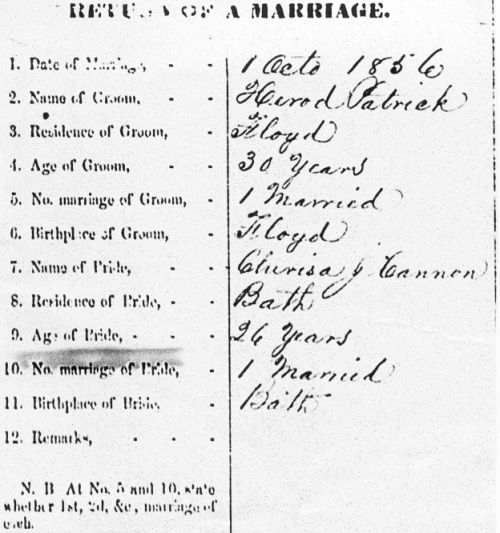 RETURN OF A MARRIAGE.
1. Date of Marriage, - - 1 Octo 1856
2. Name of Groom, - - Herod Patrick
3. Residence of Groom, - Floyd
4. Age of Groom, - - 30 Years
5. No. marriage of Groom, - 1 Married
6. Birthplace of Groom, - Floyd
7. Name of Bride, - - J Cannon
8. Residence of Bride, - - Bath
9. Age of Bride, - - - 26 Years
10. No. marriage of Bride, - 1 Married
11. Birthplace of Bride, - Bath
12. Remarks, - - -
N. B At No. 5 and 10, state
whether 1st, 2d, &c, marriage of
each.